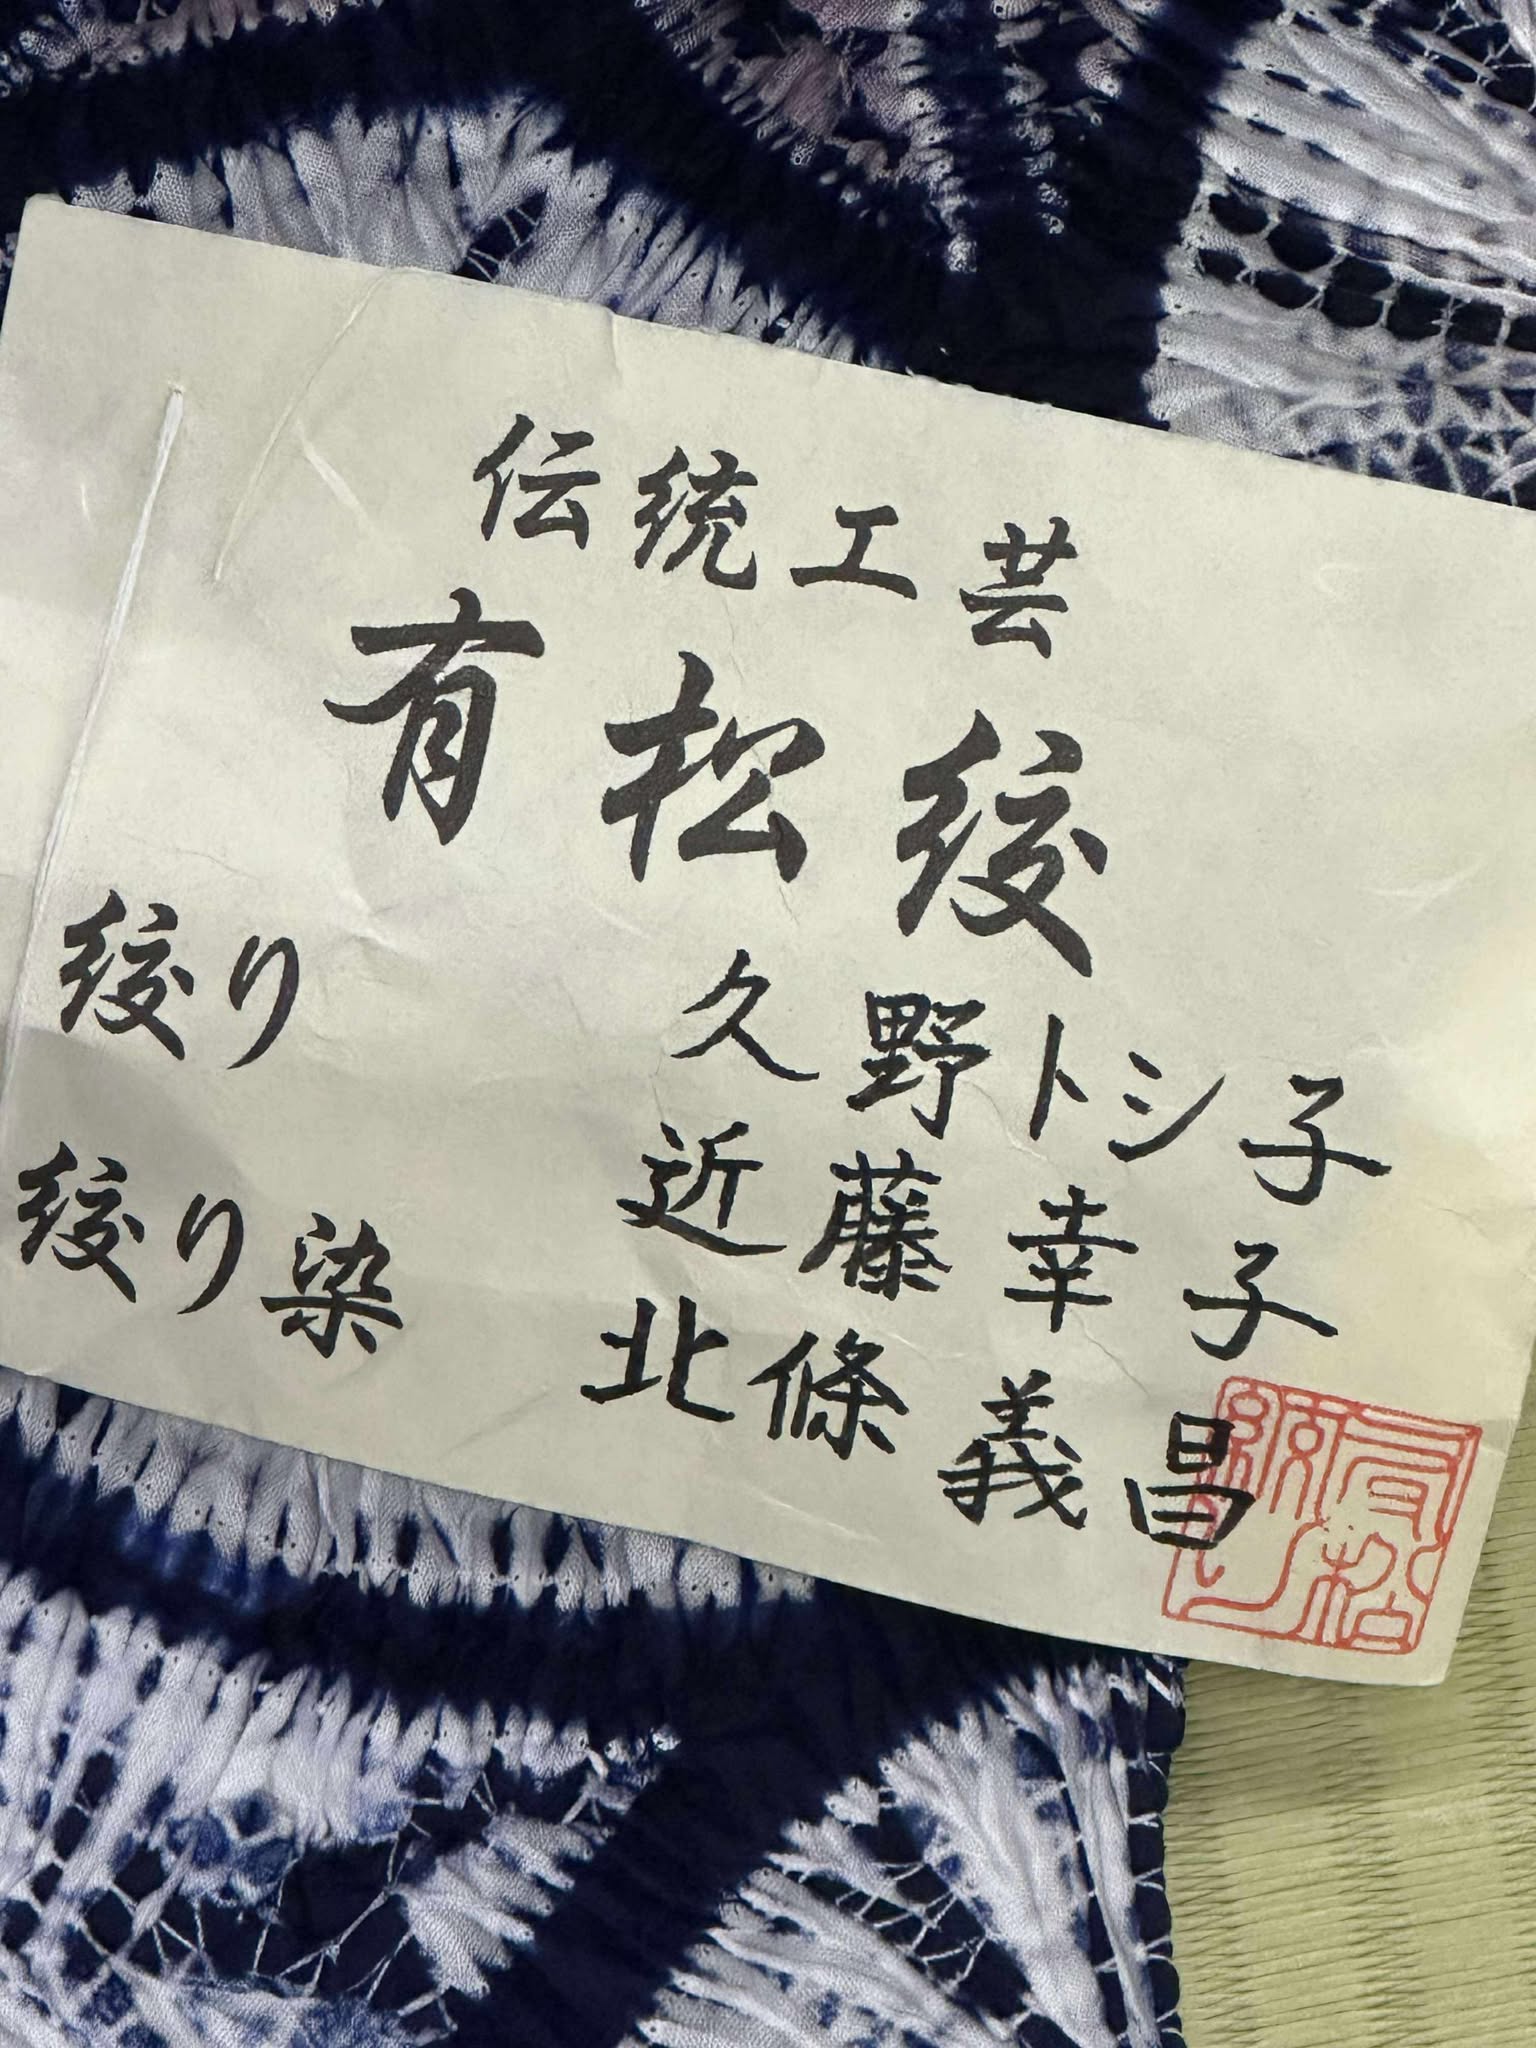 伝統工芸
有松絞
絞り 久野トシ子
近藤幸子
絞り染 北條義昌
有松
絞り